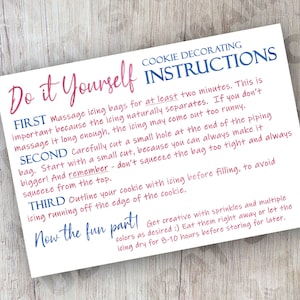 Do it Yourself COOKIE DECORATING INSTRUCTIONS
FIRST Massage icing bags for at least two minutes. This is
important because the icing naturally separates. If you don't
massage it long enough, the icing may come out too runny.
SECOND Carefully cut a small hole at the end of the piping
bag. Start with a small cut, because you can always make it
bigger! And remember - don't squeeze the bag too tight and always
squeeze from the top.
THIRD Outline your cookie with icing before filling, to avoid
icing running off the edge of the cookie.
Now the fun part! Get creative with sprinkles and multiple
colors as desired :) Eat them right away or let the
icing dry for 8-10 hours before storing for later.